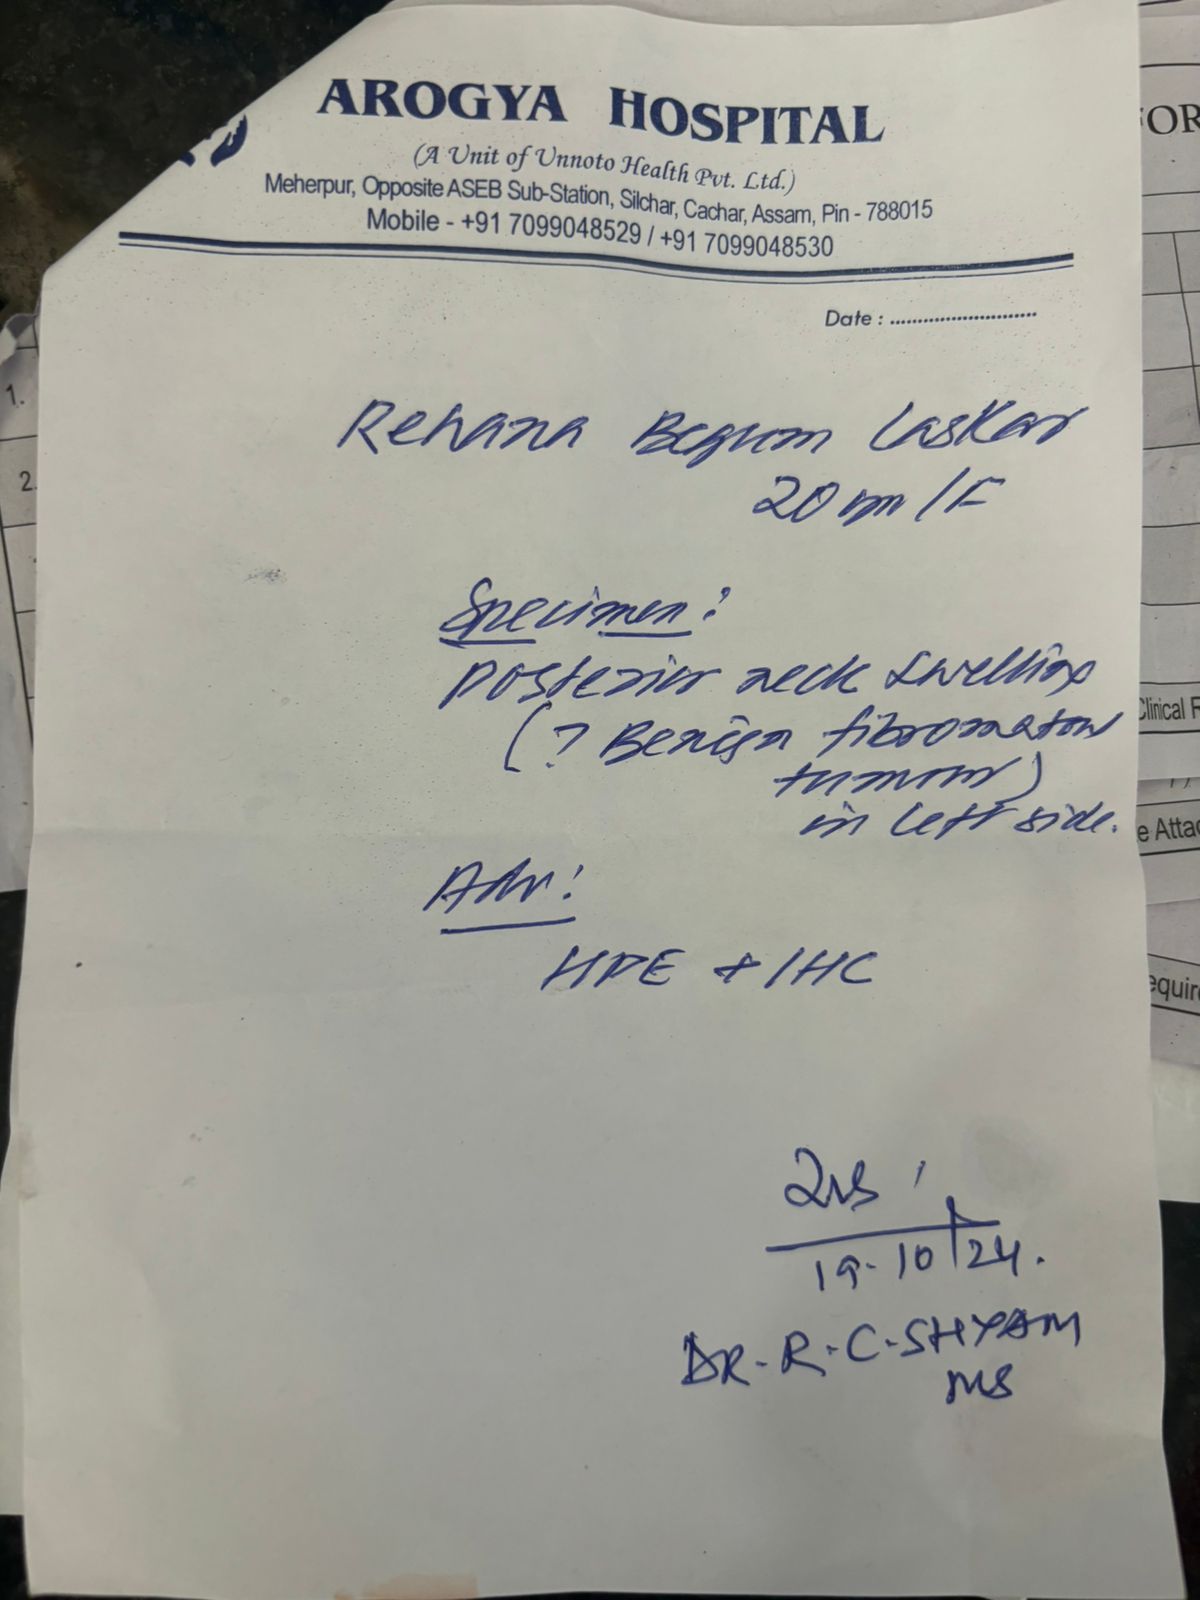 AROGYA HOSPITAL
(A Unit of Unnoto Health Pvt. Ltd.)
Meherpur, Opposite ASEB Sub-Station, Silchar, Cachar, Assam, Pin - 788015
Mobile - +91 7099048529 / +91 7099048530
Date : ..........................
Rehana Begum Laskar
20 /F
Specimen:
Posterior neck swelling
(? Benign fibromatous
tumour)
in left side.
Adv:
HPE + IHC
19-10/24.
DR. R. C. SHYAM
MS
1.
2.
FOR
Clinical
equir